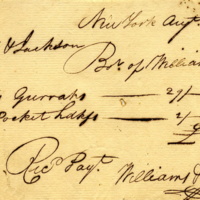 New York Augt.
& Jackson
Bot. of William
Gurrahs — 27/
Pocket Hdkfs — 4/
Recd. Payt.
Williams &